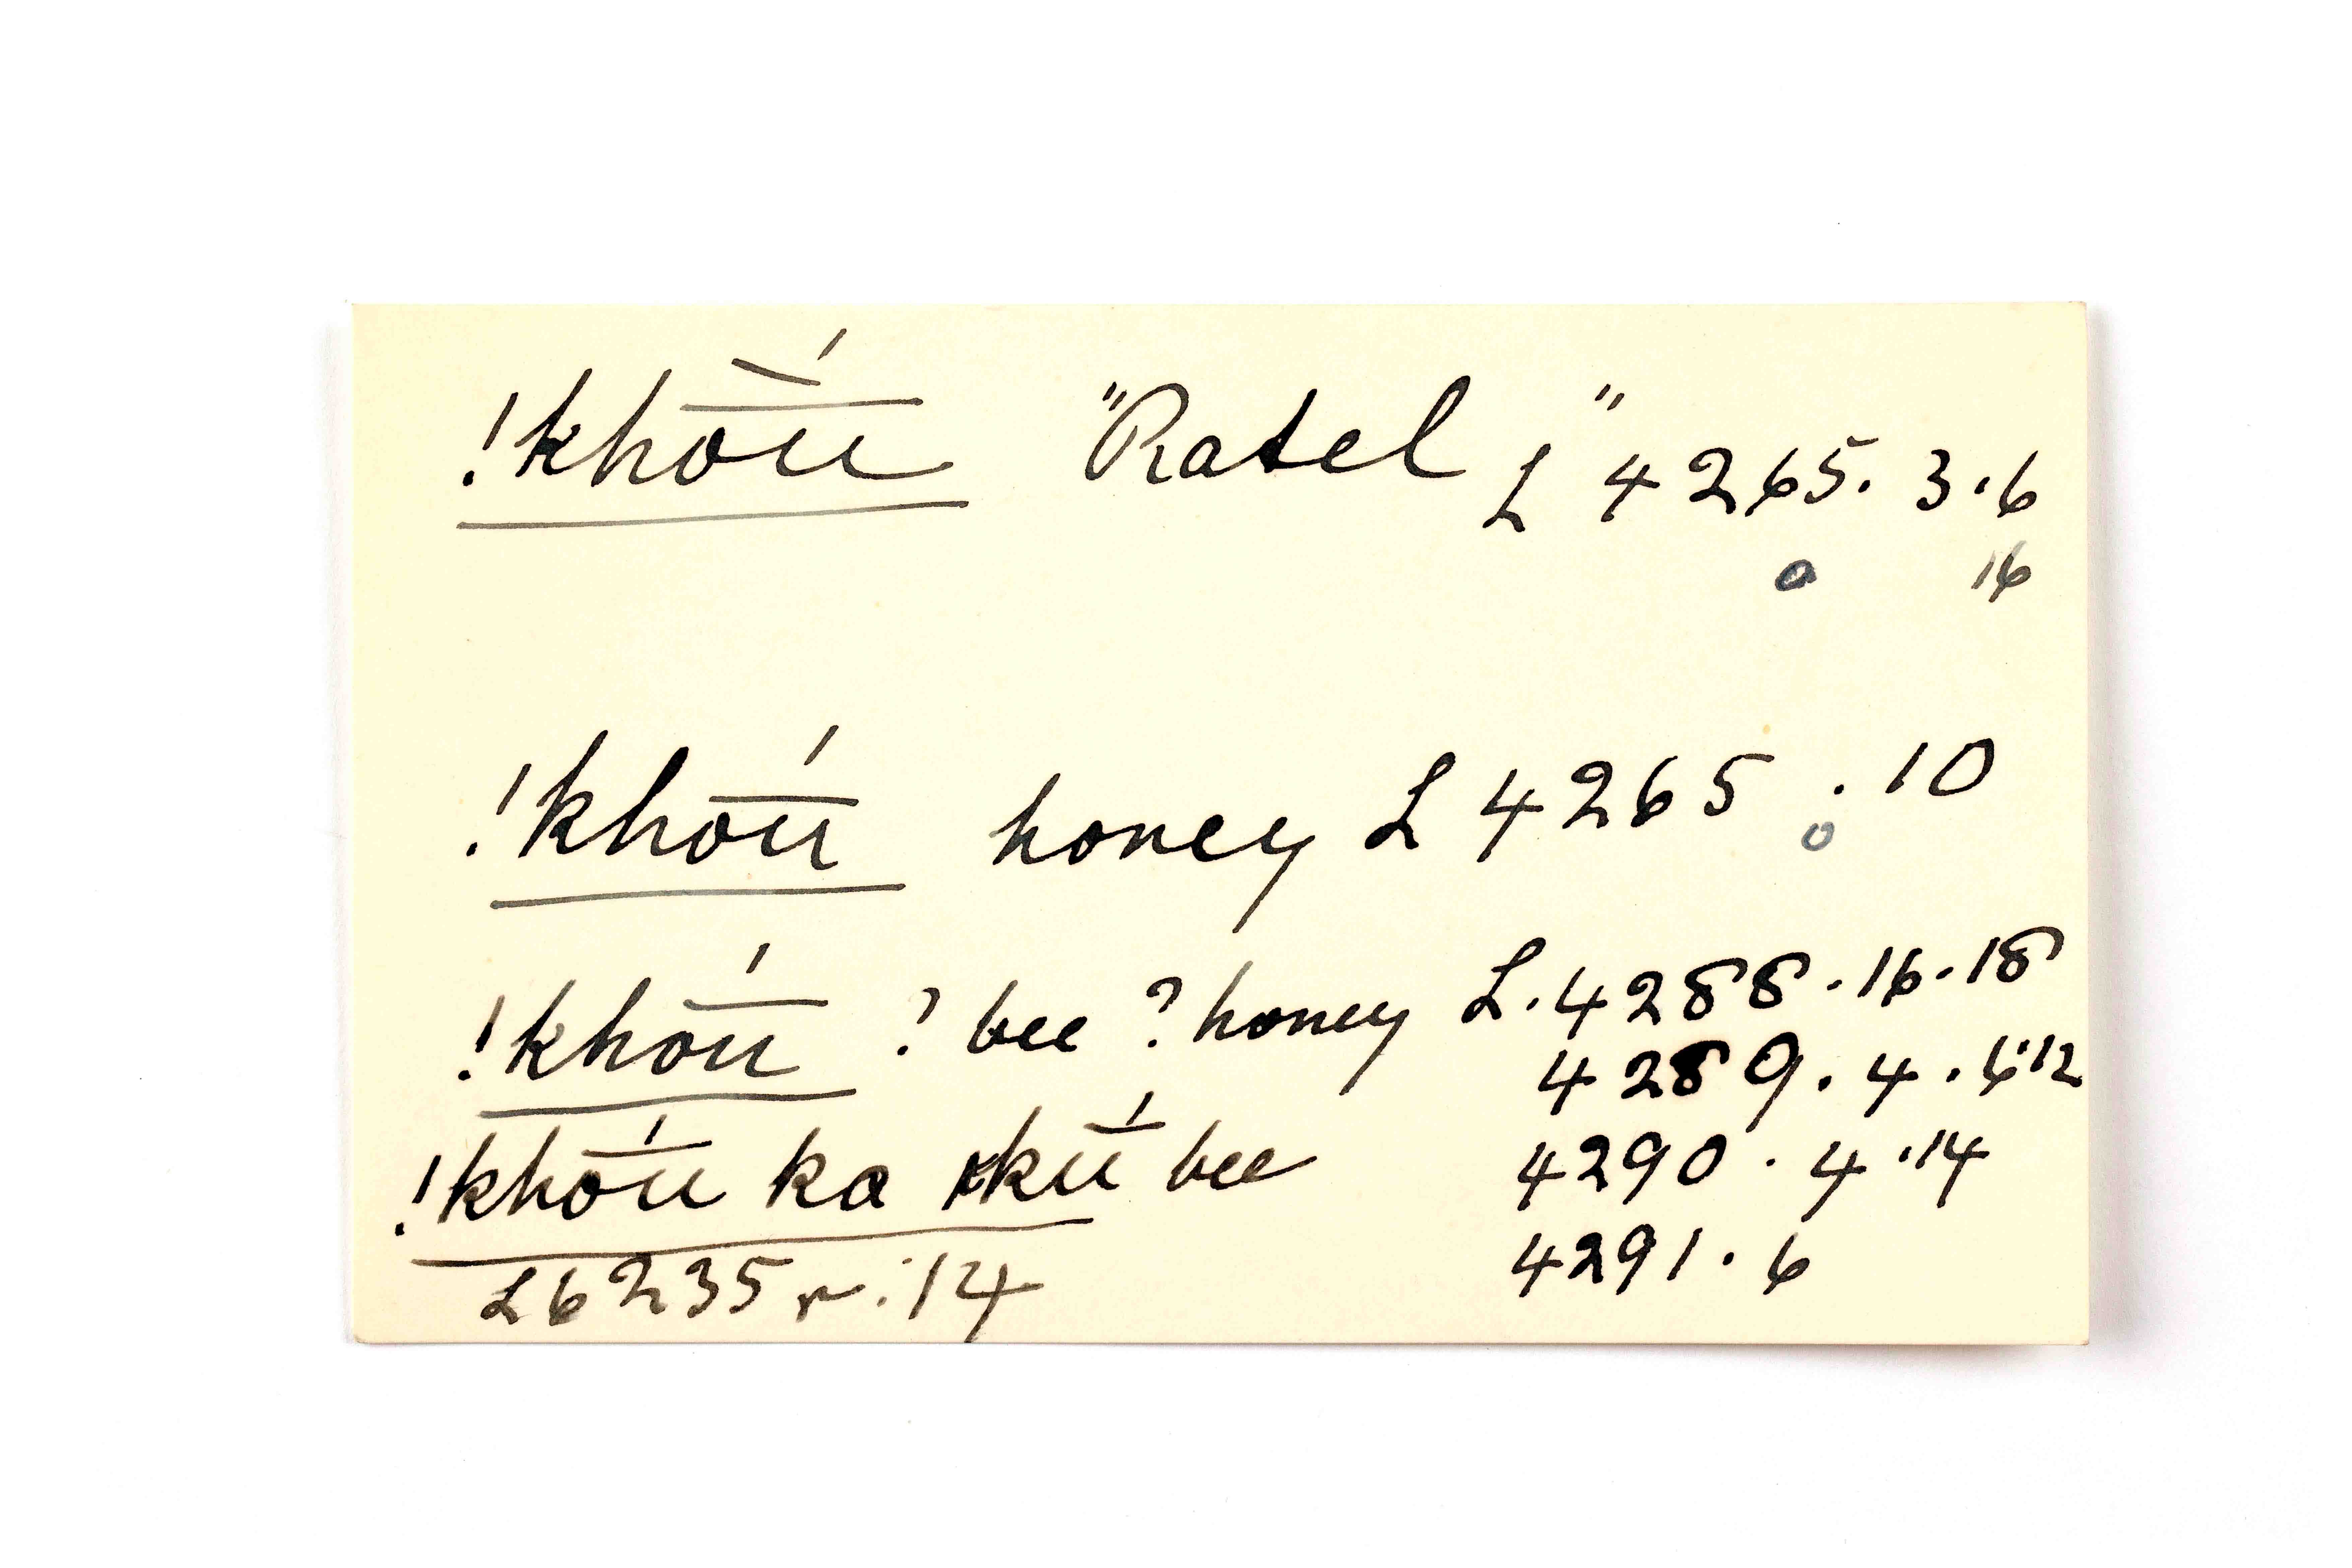 !khōú̀ "Ratel" L 4265. 3.6
o 16
!khōú honey L 4265 . 10
o
!khōú ? bee ? honey L. 4288 . 16 . 18
4289 . 4 . 6 . 12
!khōú ka kū́ bee 4290 . 4 . 14
4291 . 6
L 6235 r. : 14